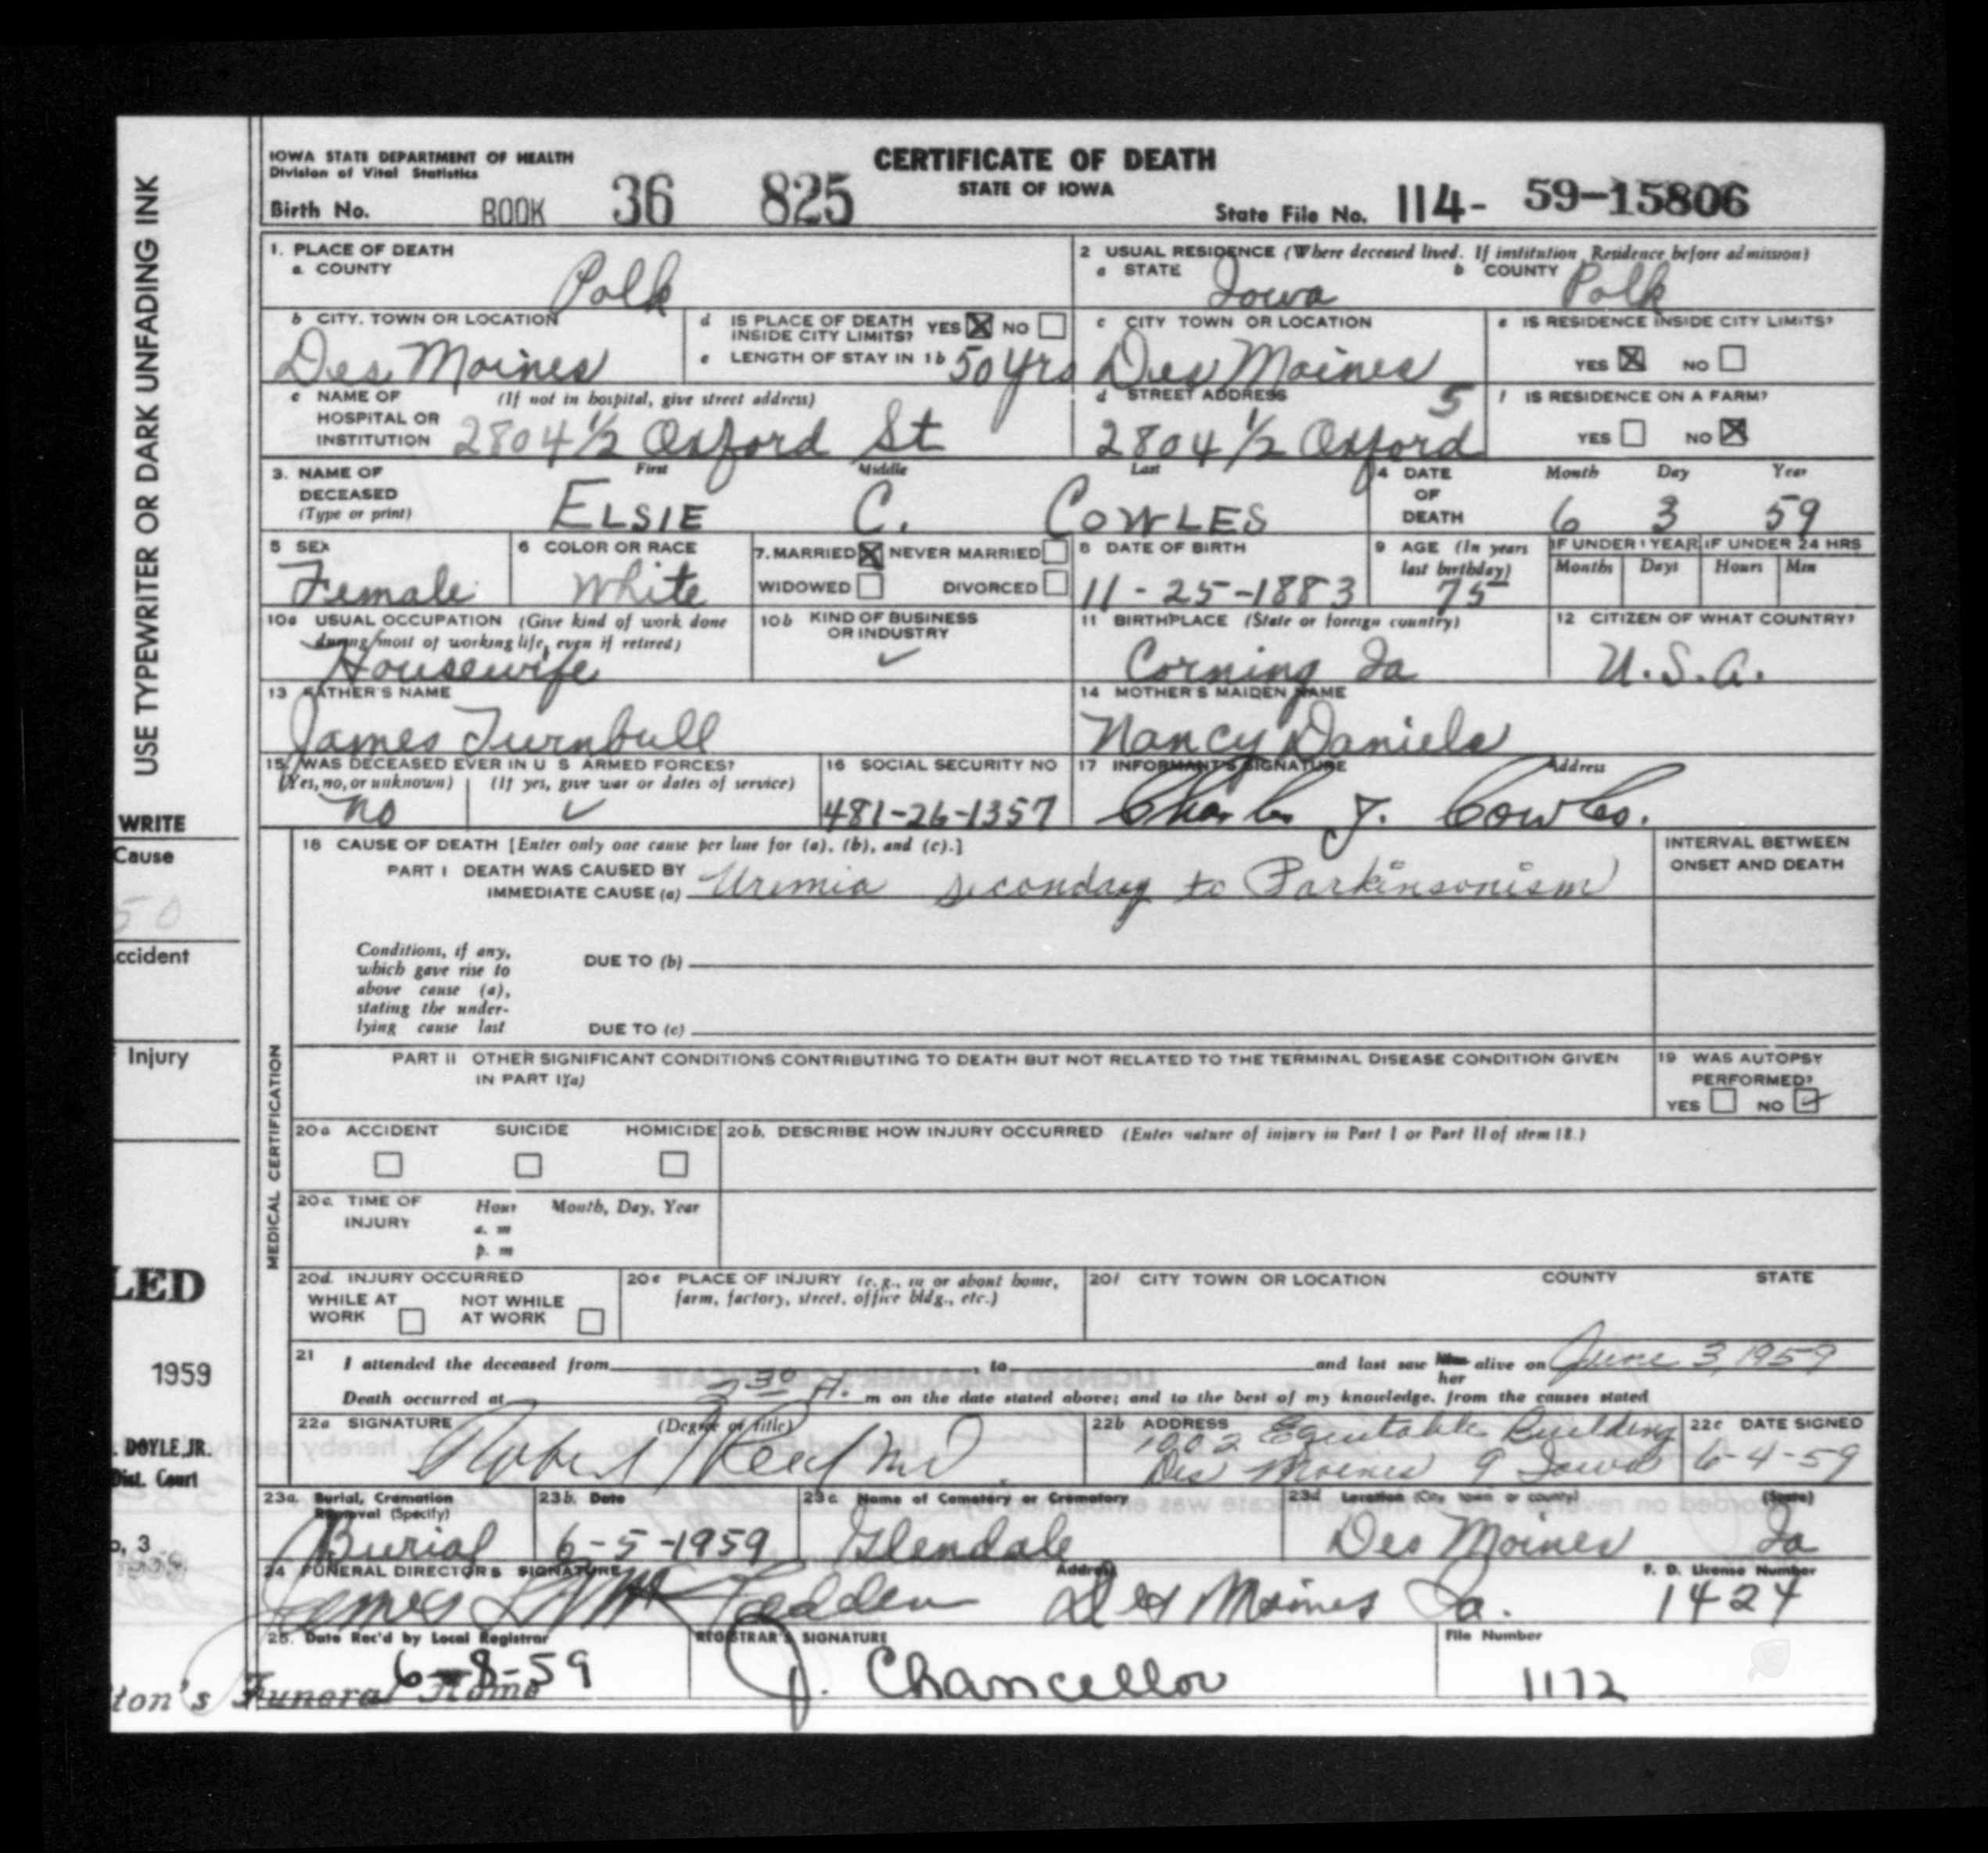 USE TYPEWRITER OR DARK UNFADING INK
IOWA STATE DEPARTMENT OF HEALTH
Division of Vital Statistics
Birth No. BOOK 36 825
CERTIFICATE OF DEATH
STATE OF IOWA
State File No. 114- 59-15806
1. PLACE OF DEATH
a. COUNTY Polk
2 USUAL RESIDENCE (Where deceased lived. If institution Residence before admission)
a STATE Iowa b COUNTY Polk
b CITY, TOWN OR LOCATION Des Moines
d IS PLACE OF DEATH INSIDE CITY LIMITS? YES ☒ NO ☐
e LENGTH OF STAY IN 1b 50 yrs
c CITY TOWN OR LOCATION Des Moines
e IS RESIDENCE INSIDE CITY LIMITS?
YES ☒ NO ☐
c NAME OF HOSPITAL OR INSTITUTION (If not in hospital, give street address)
2804 1/2 Oxford St
d STREET ADDRESS 5
2804 1/2 Oxford
f IS RESIDENCE ON A FARM?
YES ☐ NO ☒
3. NAME OF DECEASED (Type or print)
First Middle Last
ELSIE C. COWLES
4 DATE OF DEATH
Month Day Year
6 3 59
5 SEX Female
6 COLOR OR RACE White
7. MARRIED ☒ NEVER MARRIED ☐
WIDOWED ☐ DIVORCED ☐
8 DATE OF BIRTH
11-25-1883
9 AGE (In years last birthday) 75
IF UNDER 1 YEAR IF UNDER 24 HRS
Months Days Hours Min
10a USUAL OCCUPATION (Give kind of work done during most of working life, even if retired)
Housewife
10b KIND OF BUSINESS OR INDUSTRY ✓
11 BIRTHPLACE (State or foreign country)
Corning Ia
12 CITIZEN OF WHAT COUNTRY?
U.S.A.
13 FATHER'S NAME
James Turnbull
14 MOTHER'S MAIDEN NAME
Nancy Daniels
15 WAS DECEASED EVER IN U S ARMED FORCES?
(Yes, no, or unknown) (If yes, give war or dates of service)
no ✓
16 SOCIAL SECURITY NO
481-26-1357
17 INFORMANT'S SIGNATURE Address
Charles J. Cowles.
WRITE
Cause
50
ccident
Injury
MEDICAL CERTIFICATION
18 CAUSE OF DEATH [Enter only one cause per line for (a), (b), and (c).]
INTERVAL BETWEEN ONSET AND DEATH
PART I DEATH WAS CAUSED BY
IMMEDIATE CAUSE (a) Uremia secondary to Parkinsonism
Conditions, if any, which gave rise to above cause (a), stating the underlying cause last
DUE TO (b)
DUE TO (c)
PART II OTHER SIGNIFICANT CONDITIONS CONTRIBUTING TO DEATH BUT NOT RELATED TO THE TERMINAL DISEASE CONDITION GIVEN
IN PART I(a)
19 WAS AUTOPSY PERFORMED?
YES ☐ NO ☑
20a ACCIDENT SUICIDE HOMICIDE
☐ ☐ ☐
20b. DESCRIBE HOW INJURY OCCURRED (Enter nature of injury in Part I or Part II of item 18.)
20c. TIME OF INJURY
Hour Month, Day, Year
a. m
p. m
20d. INJURY OCCURRED
WHILE AT WORK ☐ NOT WHILE AT WORK ☐
20e PLACE OF INJURY (e.g., in or about home, farm, factory, street, office bldg., etc.)
20f CITY TOWN OR LOCATION COUNTY STATE
LED
1959
21 I attended the deceased from to and last saw him her alive on June 3, 1959
Death occurred at 3 30 A. m on the date stated above; and to the best of my knowledge, from the causes stated
DOYLE, JR.
Dist. Court
22a SIGNATURE (Degree or title)
Robert Reed M.D.
22b ADDRESS 1002 Equitable Building
Des Moines 9 Iowa
22c DATE SIGNED
6-4-59
23a. Burial, Cremation Removal (Specify)
Burial
23b. Date
6-5-1959
23c Name of Cemetery or Crematory
Glendale
23d Location (City town or county) (State)
Des Moines Ia
o, 3
1959
24 FUNERAL DIRECTORS SIGNATURE Address
James McFadden Des Moines Ia.
F. D. License Number
1424
25. Date Rec'd by Local Registrar
6-8-59
REGISTRAR'S SIGNATURE
J. Chancellor
File Number
1172
ton's Funeral Home